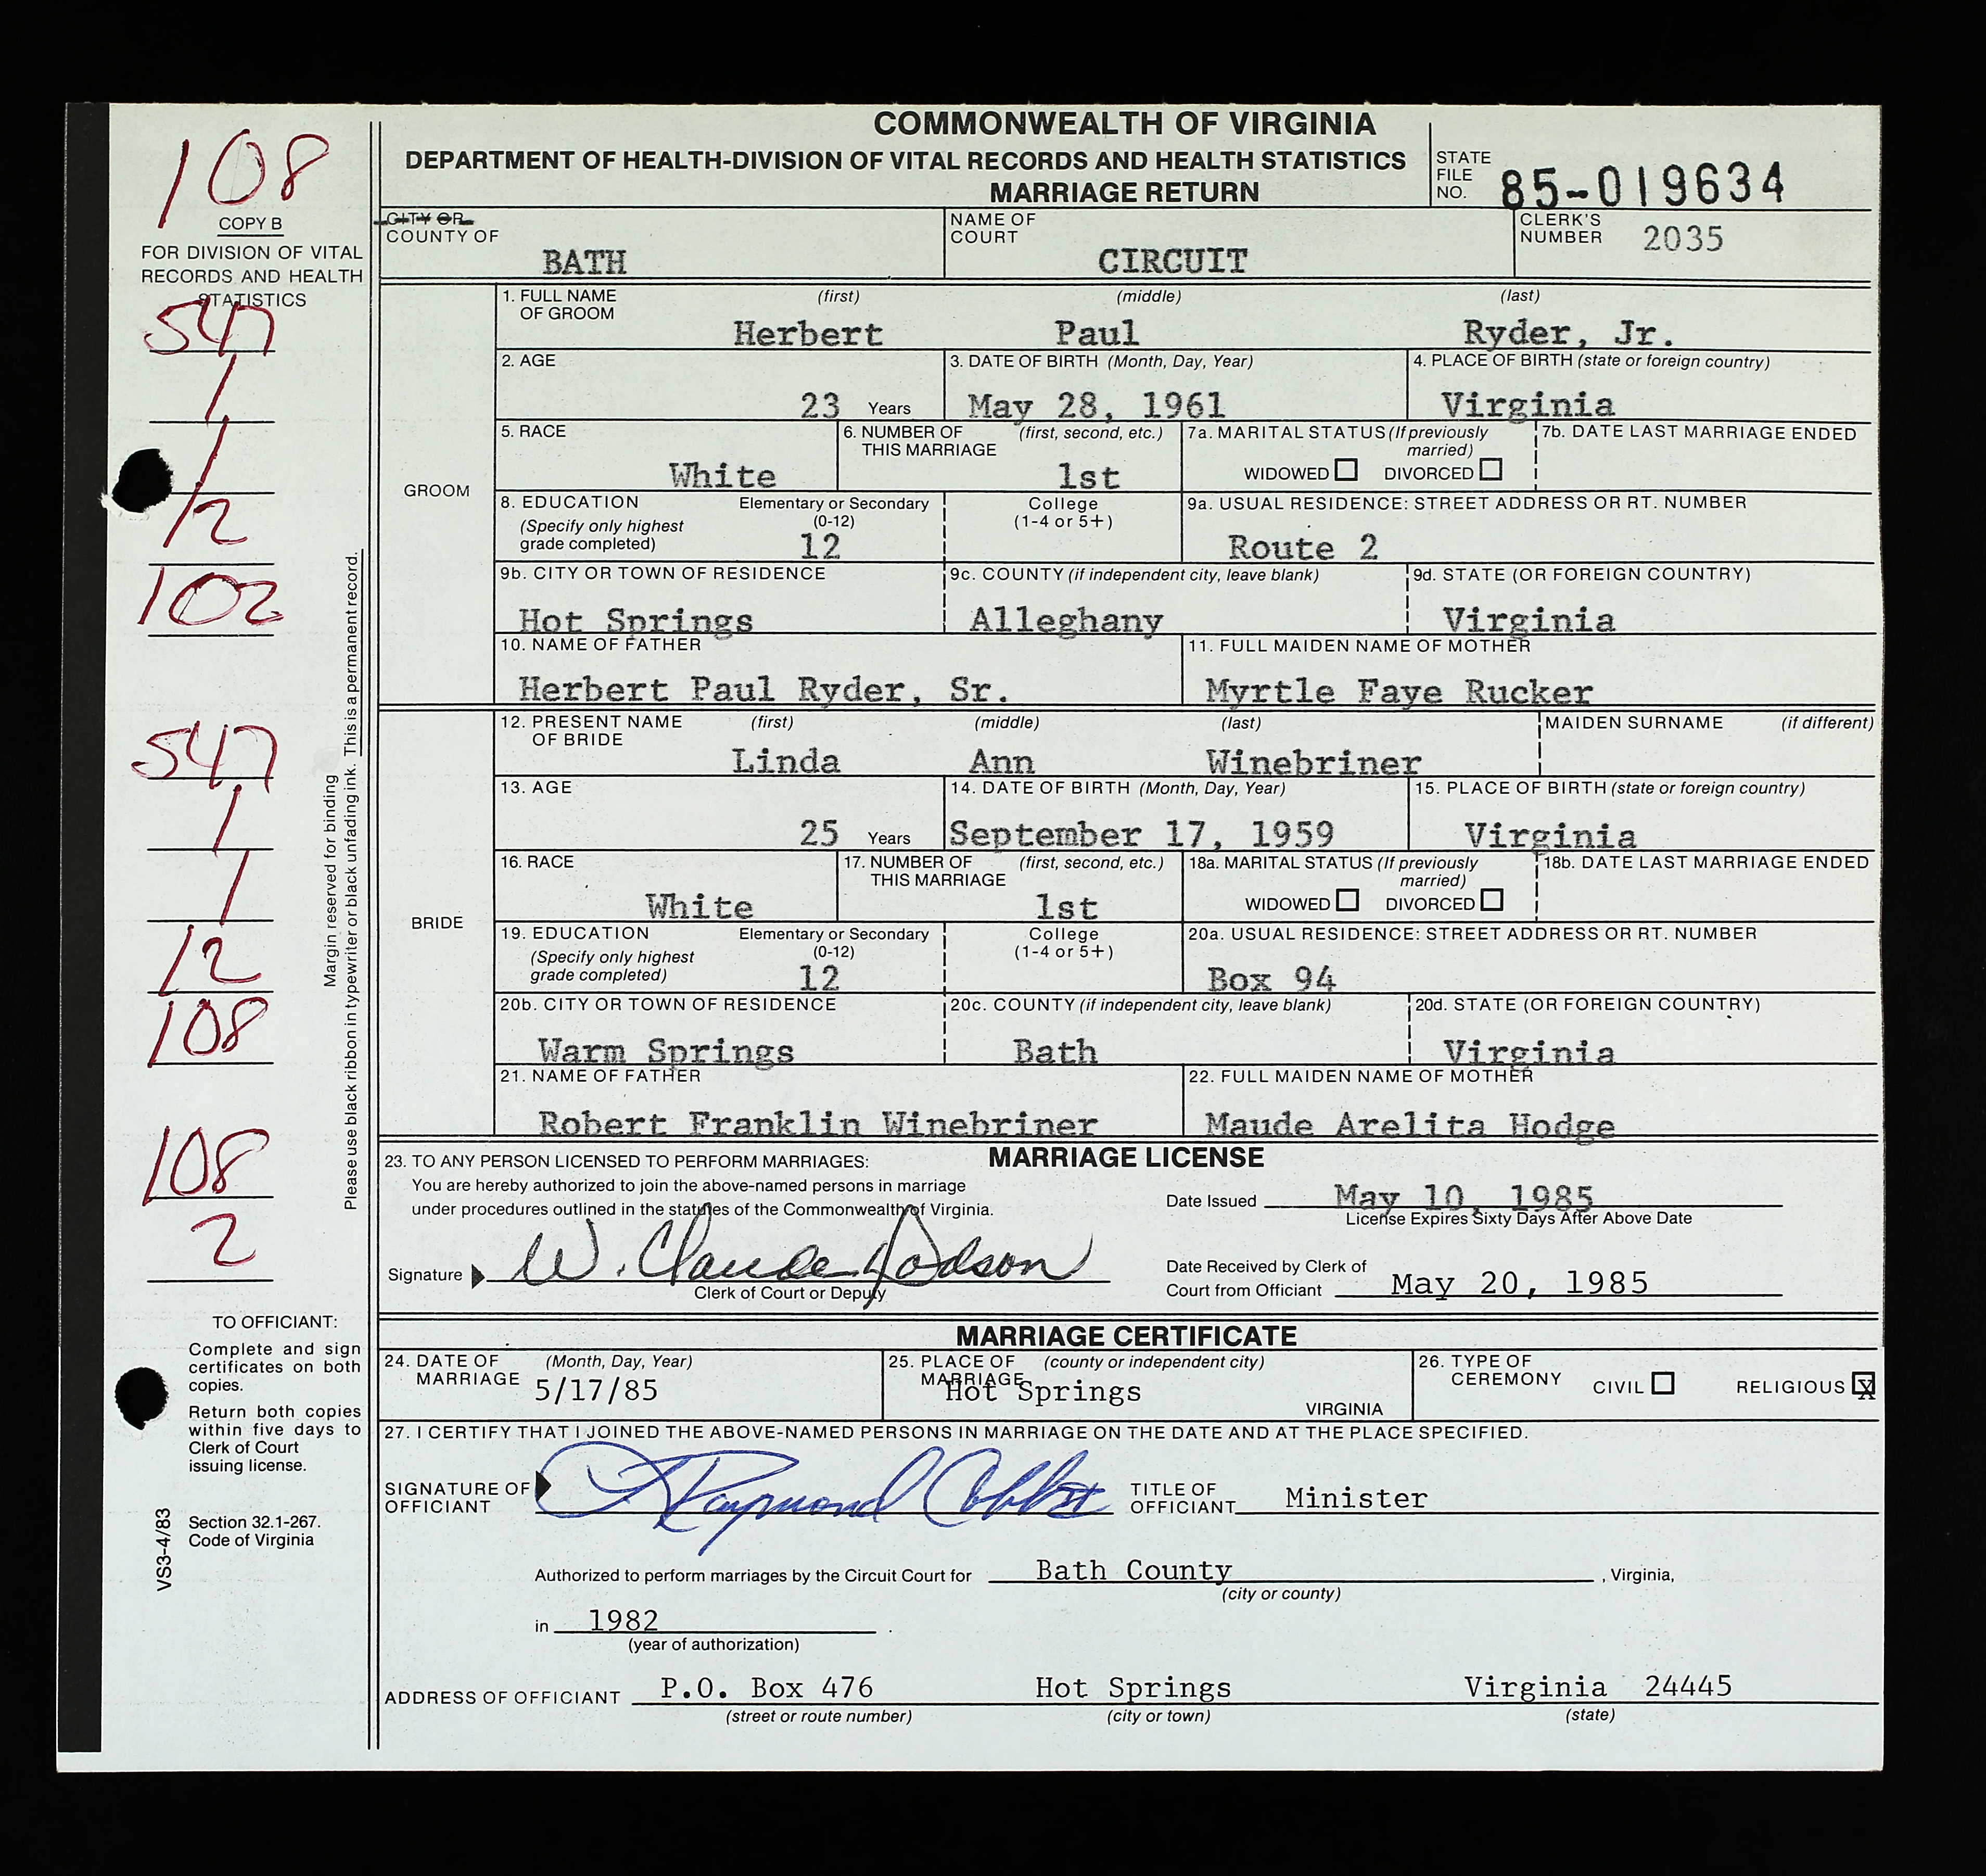 COMMONWEALTH OF VIRGINIA
DEPARTMENT OF HEALTH-DIVISION OF VITAL RECORDS AND HEALTH STATISTICS
MARRIAGE RETURN
STATE FILE NO. 85-019634
108
COPY B
FOR DIVISION OF VITAL
RECORDS AND HEALTH
STATISTICS
547
1
1
12
102
547
1
1
12
108
108
2
Margin reserved for binding
Please use black ribbon in typewriter or black unfading ink. This is a permanent record.
TO OFFICIANT:
Complete and sign
certificates on both
copies.
Return both copies
within five days to
Clerk of Court
issuing license.
Section 32.1-267.
Code of Virginia
VS3-4/83
CITY OR
COUNTY OF BATH
NAME OF COURT CIRCUIT
CLERK'S NUMBER 2035
GROOM
1. FULL NAME OF GROOM (first) (middle) (last)
Herbert Paul Ryder, Jr.
2. AGE 3. DATE OF BIRTH (Month, Day, Year) 4. PLACE OF BIRTH (state or foreign country)
23 Years May 28, 1961 Virginia
5. RACE 6. NUMBER OF THIS MARRIAGE (first, second, etc.) 7a. MARITAL STATUS (If previously married) 7b. DATE LAST MARRIAGE ENDED
White 1st WIDOWED DIVORCED
8. EDUCATION (Specify only highest grade completed) Elementary or Secondary (0-12) College (1-4 or 5+) 9a. USUAL RESIDENCE: STREET ADDRESS OR RT. NUMBER
12 Route 2
9b. CITY OR TOWN OF RESIDENCE 9c. COUNTY (if independent city, leave blank) 9d. STATE (OR FOREIGN COUNTRY)
Hot Springs Alleghany Virginia
10. NAME OF FATHER 11. FULL MAIDEN NAME OF MOTHER
Herbert Paul Ryder, Sr. Myrtle Faye Rucker
BRIDE
12. PRESENT NAME OF BRIDE (first) (middle) (last) MAIDEN SURNAME (if different)
Linda Ann Winebriner
13. AGE 14. DATE OF BIRTH (Month, Day, Year) 15. PLACE OF BIRTH (state or foreign country)
25 Years September 17, 1959 Virginia
16. RACE 17. NUMBER OF THIS MARRIAGE (first, second, etc.) 18a. MARITAL STATUS (If previously married) 18b. DATE LAST MARRIAGE ENDED
White 1st WIDOWED DIVORCED
19. EDUCATION (Specify only highest grade completed) Elementary or Secondary (0-12) College (1-4 or 5+) 20a. USUAL RESIDENCE: STREET ADDRESS OR RT. NUMBER
12 Box 94
20b. CITY OR TOWN OF RESIDENCE 20c. COUNTY (if independent city, leave blank) 20d. STATE (OR FOREIGN COUNTRY)
Warm Springs Bath Virginia
21. NAME OF FATHER 22. FULL MAIDEN NAME OF MOTHER
Robert Franklin Winebriner Maude Arelita Hodge
MARRIAGE LICENSE
23. TO ANY PERSON LICENSED TO PERFORM MARRIAGES:
You are hereby authorized to join the above-named persons in marriage
under procedures outlined in the statutes of the Commonwealth of Virginia.
Date Issued May 10, 1985
License Expires Sixty Days After Above Date
Signature W. Claude Dodson
Clerk of Court or Deputy
Date Received by Clerk of
Court from Officiant May 20, 1985
MARRIAGE CERTIFICATE
24. DATE OF MARRIAGE (Month, Day, Year) 5/17/85
25. PLACE OF MARRIAGE (county or independent city) Hot Springs VIRGINIA
26. TYPE OF CEREMONY CIVIL RELIGIOUS X
27. I CERTIFY THAT I JOINED THE ABOVE-NAMED PERSONS IN MARRIAGE ON THE DATE AND AT THE PLACE SPECIFIED.
SIGNATURE OF OFFICIANT Raymond
TITLE OF OFFICIANT Minister
Authorized to perform marriages by the Circuit Court for Bath County , Virginia,
(city or county)
in 1982 .
(year of authorization)
ADDRESS OF OFFICIANT P.O. Box 476 Hot Springs Virginia 24445
(street or route number) (city or town) (state)